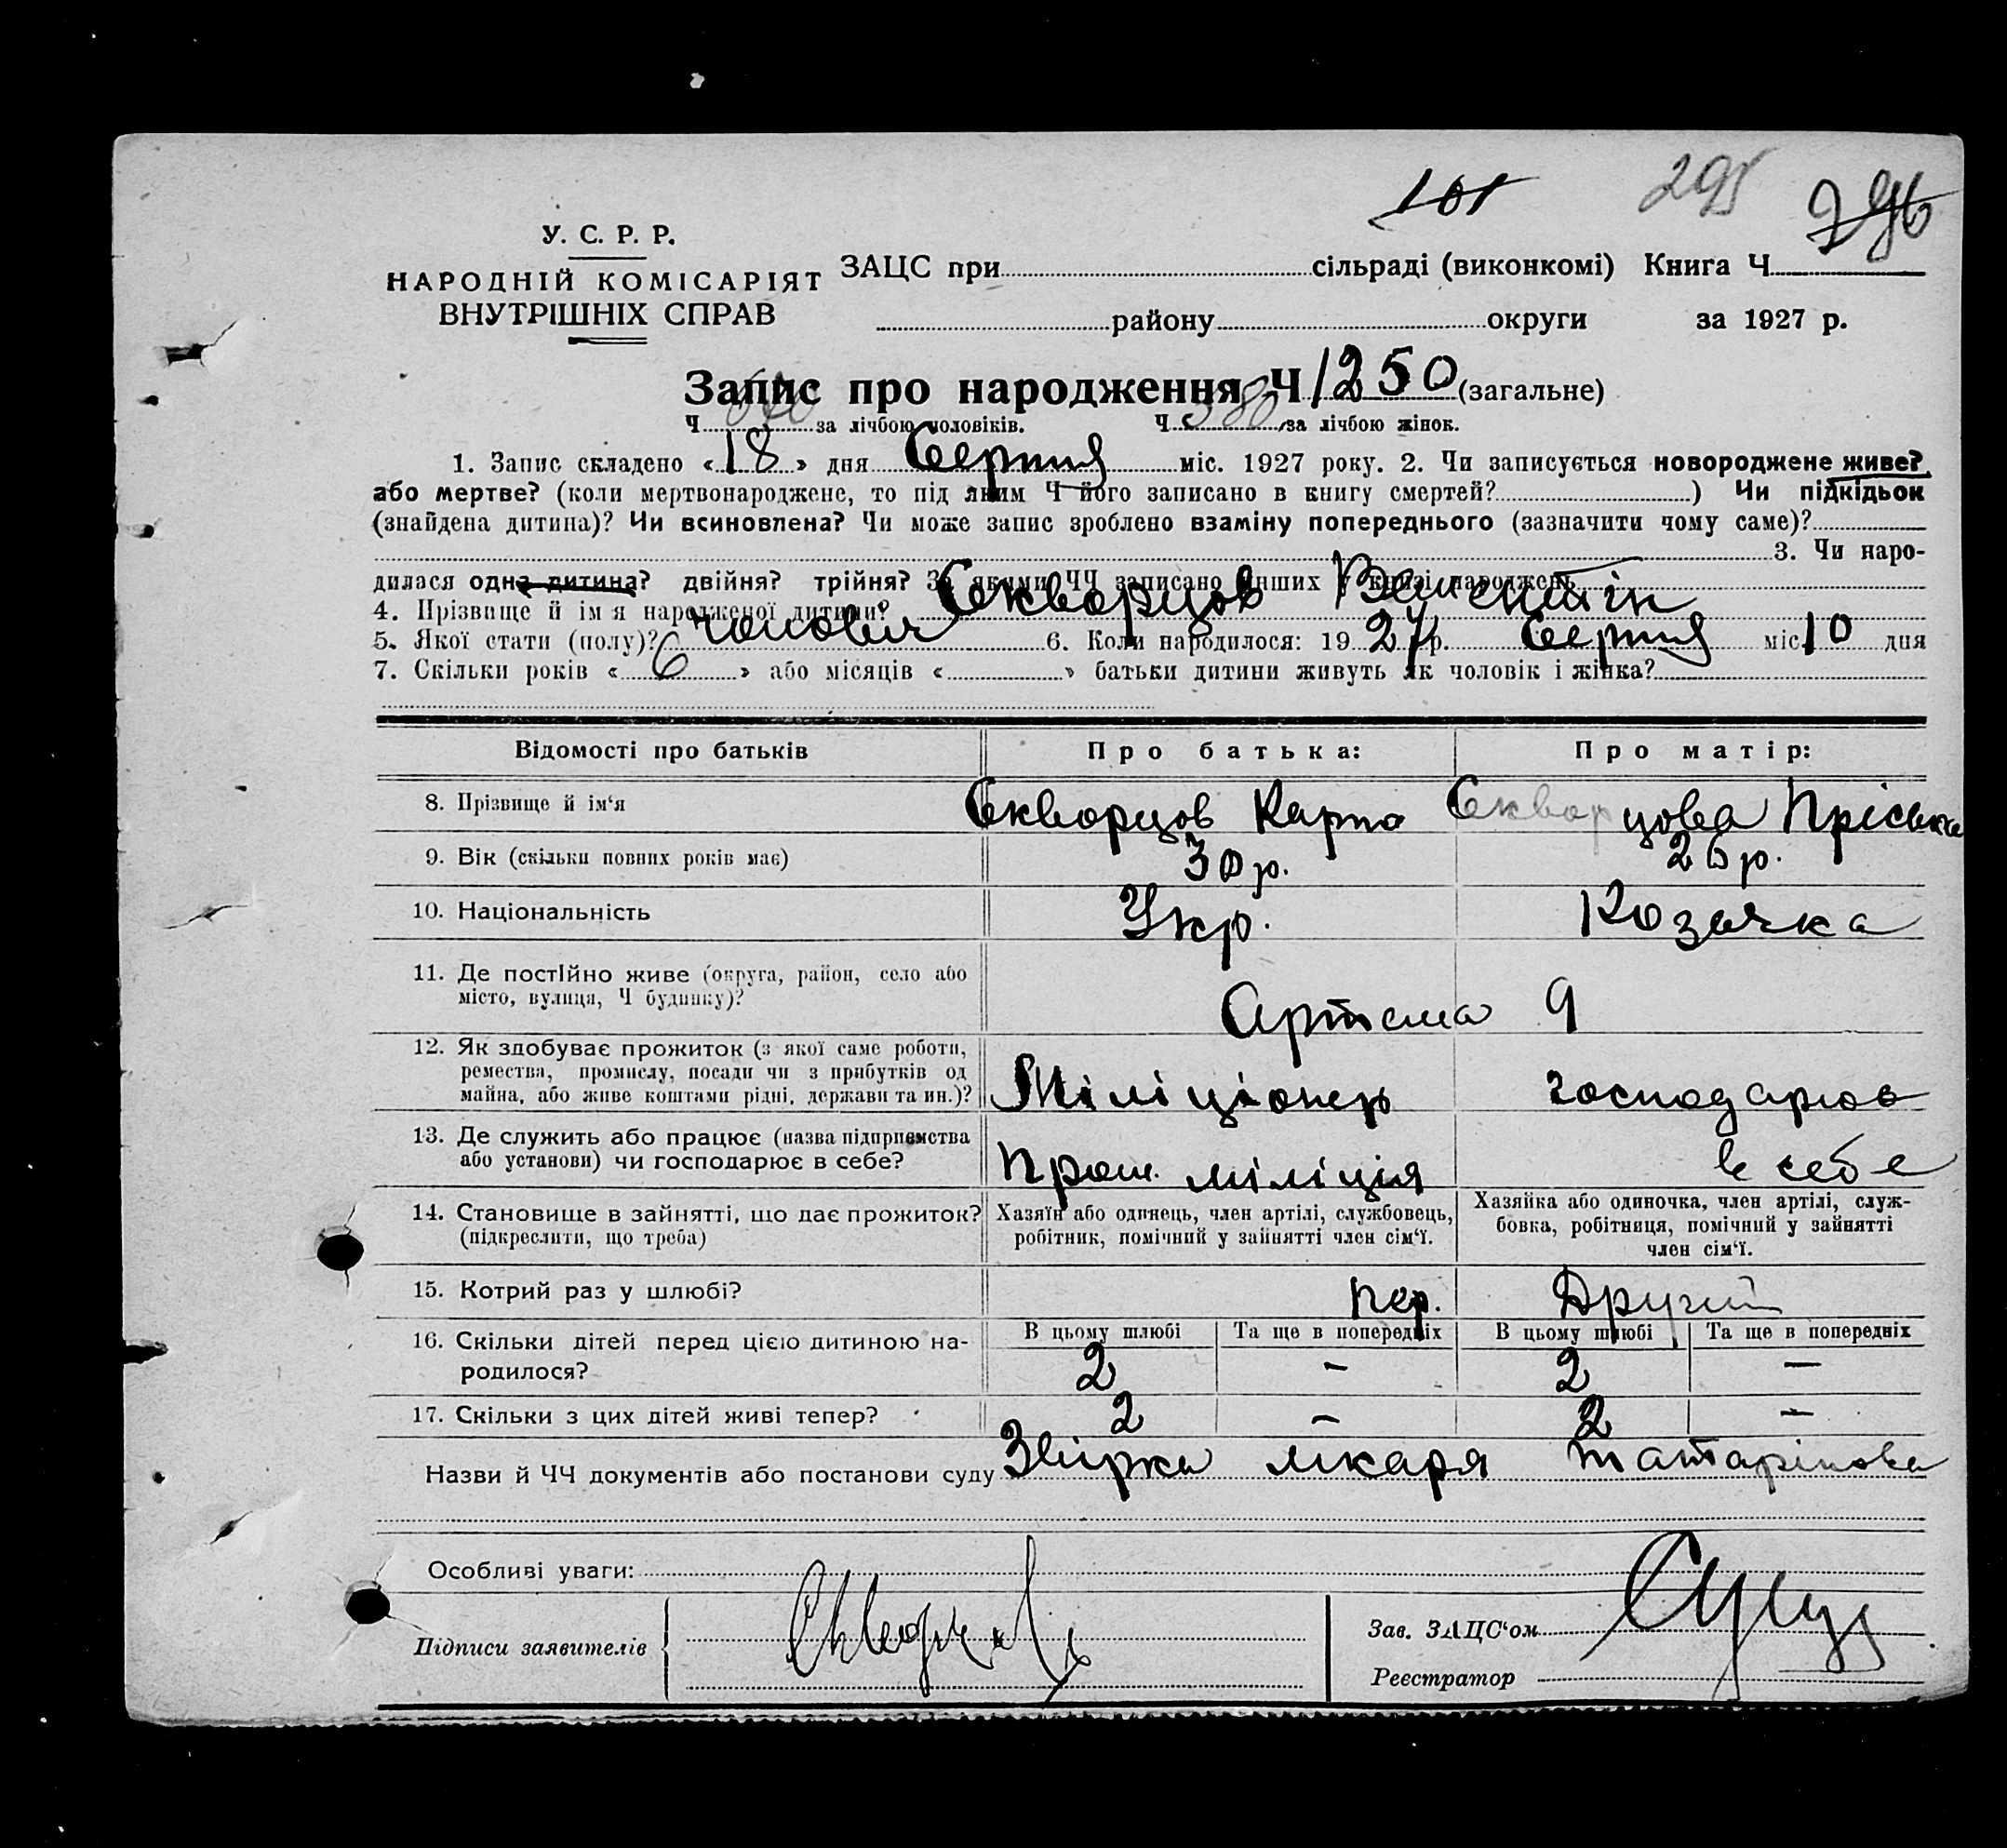 101 295 296
У. С. Р. Р.
НАРОДНІЙ КОМІСАРІЯТ
ВНУТРІШНІХ СПРАВ
ЗАЦС при сільраді (виконкомі) Книга Ч
району округи за 1927 р.
Запис про народження Ч 1250 (загальне)
Ч за лічбою чоловіків. Ч 580 за лічбою жінок.
1. Запис складено « 18 » дня Серпня міс. 1927 року. 2. Чи записується новороджене живе?
або мертве? (коли мертвонароджене, то під яким Ч його записано в книгу смертей? ) Чи підкідьок
(знайдена дитина)? Чи всиновлена? Чи може запис зроблено взаміну попереднього (зазначити чому саме)?
3. Чи наро-
дилася одна дитина? двійня? трійня? За якими ЧЧ записано инших у книзі народжень
4. Прізвище й ім я народженої дитини? Скворцов Валентін
5. Якої стати (полу)? чоловіч 6. Коли народилося: 19 27 р. Серпня міс. 10 дня
7. Скільки років « 6 » або місяців « » батьки дитини живуть як чоловік і жінка?
Відомості про батьків Про батька: Про матір:
8. Прізвище й ім‘я Скворцов Карпо Скворцова Пріська
9. Вік (скільки повних років має) 30 р. 26 р.
10. Національність Укр. Козачка
11. Де постійно живе (округа, район, село або
місто, вулиця, Ч будинку)? Артема 9
12. Як здобуває прожиток (з якої саме роботи,
ремества, промислу, посади чи з прибутків од
майна, або живе коштами рідні, держави та ин.)? Міліціонер господарює
13. Де служить або працює (назва підприємства
або установи) чи господарює в себе? Пром. міліція в себе
14. Становище в зайнятті, що дає прожиток?
(підкреслити, що треба)
Хазяїн або одинець, член артілі, службовець,
робітник, помічний у зайнятті член сім‘ї.
Хазяйка або одиночка, член артілі, служ-
бовка, робітниця, помічний у зайнятті
член сім‘ї.
15. Котрий раз у шлюбі? пер. Другий
16. Скільки дітей перед цією дитиною на-
родилося?
В цьому шлюбі Та ще в попередніх В цьому шлюбі Та ще в попередніх
2 – 2 –
17. Скільки з цих дітей живі тепер? 2 – 2 –
Назви й ЧЧ документів або постанови суду Звірка лікаря Татарінова
Особливі уваги:
Підписи заявителів Скворцов
Зав. ЗАЦС‘ом
Реєстратор